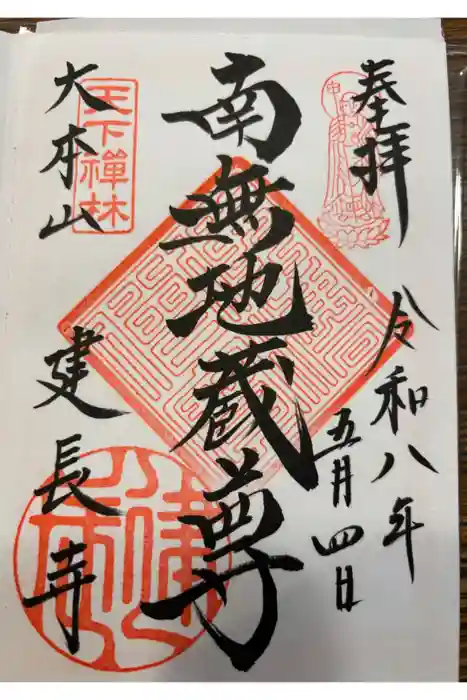 奉拝
令和八年
五月四日
南無地蔵尊
天下禅林
大本山
建長寺